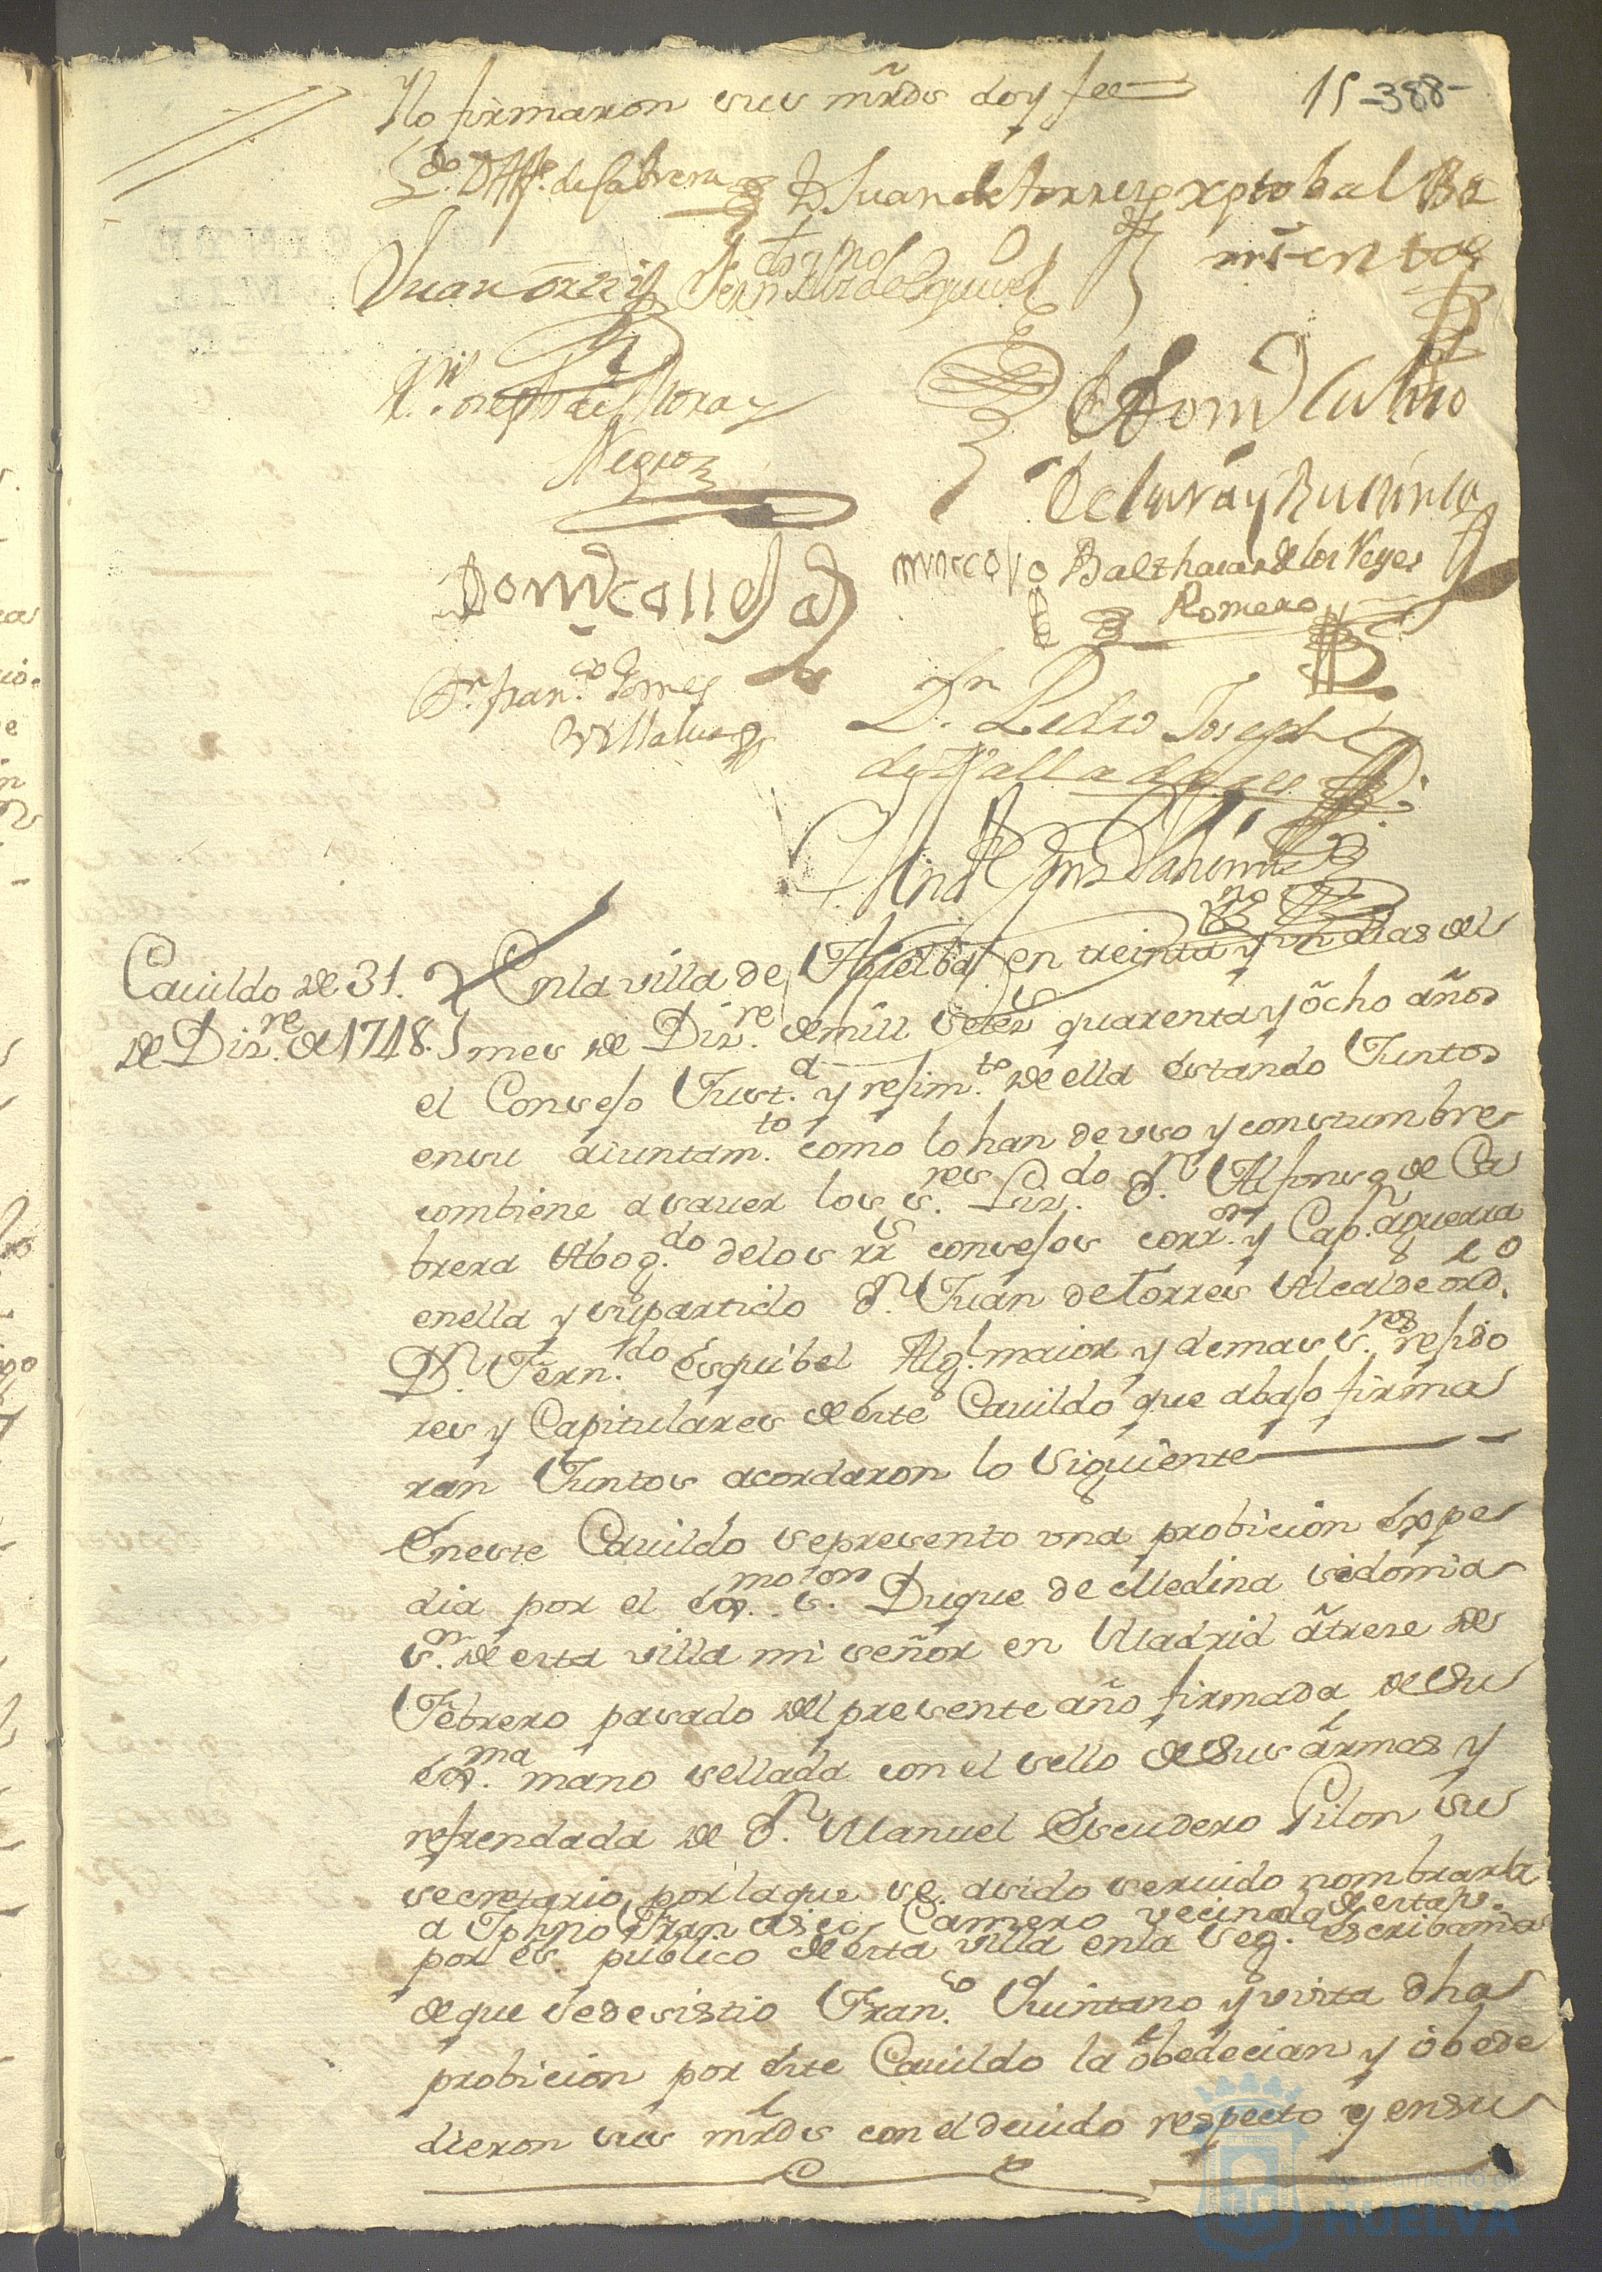 Ylo firmaron sus mrds doy fee
15 -388-
Ldo. D Alfo. de Cabrera D Juan de torres xptobal Ba
rrientos
Juan ortiz Fern do de Esquivel
Joseph de Mora y
Negro
Domo Cubero
Domo calle
marcos Balthasar de los Reyes
Romero
Dn. franco. Gomes
Villalva
Dn. Pedro Joseph
de Valladares
Cavildo de 31.
de Dizre. de 1748.
En la villa de Huelba en treinta y un dias del
mes de Dizre. de mill setezs quarenta y ocho años
el Consejo Justa. y rejimto. de ella estando Juntos
en su aiuntamto. como lo han de uso y constumbre
combiene a saver los sres. Lizdo. Dn. Alfonso de Ca
brera Abogdo. de los rrs consejos corror. y Capn. a guerra
en ella y su partido Dn. Juan de Torres Alcalde ordo.
Dn. Ferndo. Esquibel Algl. maior y demas sres. rejido
res y Capitulares de este Cavildo que abajo firma
ran Juntos acordaron lo siguiente
En este Cavildo se presento una probicion Expe
dia por el Exmo. sor. Duque de Medina sidonia
sor. de esta villa mi señor en Madrid a treze de
Febrero pasado del presente año firmada de Su
Exma. mano sellada con el sello de Sus armas y
refrendada de Dn. Manuel Escudero Pilon su
secretario por la que se a sido servido nombrar la
a Tphno Fran cisco Camero vecino de esta v.
por es. publico de esta villa en la seg. escribania
de que se desistio Franco. Quintano y vista dha
probicion por este Cavildo la obedecian y obede
cieron sus mrds con el devido respecto y en su
Ayuntamiento de
HUELVA